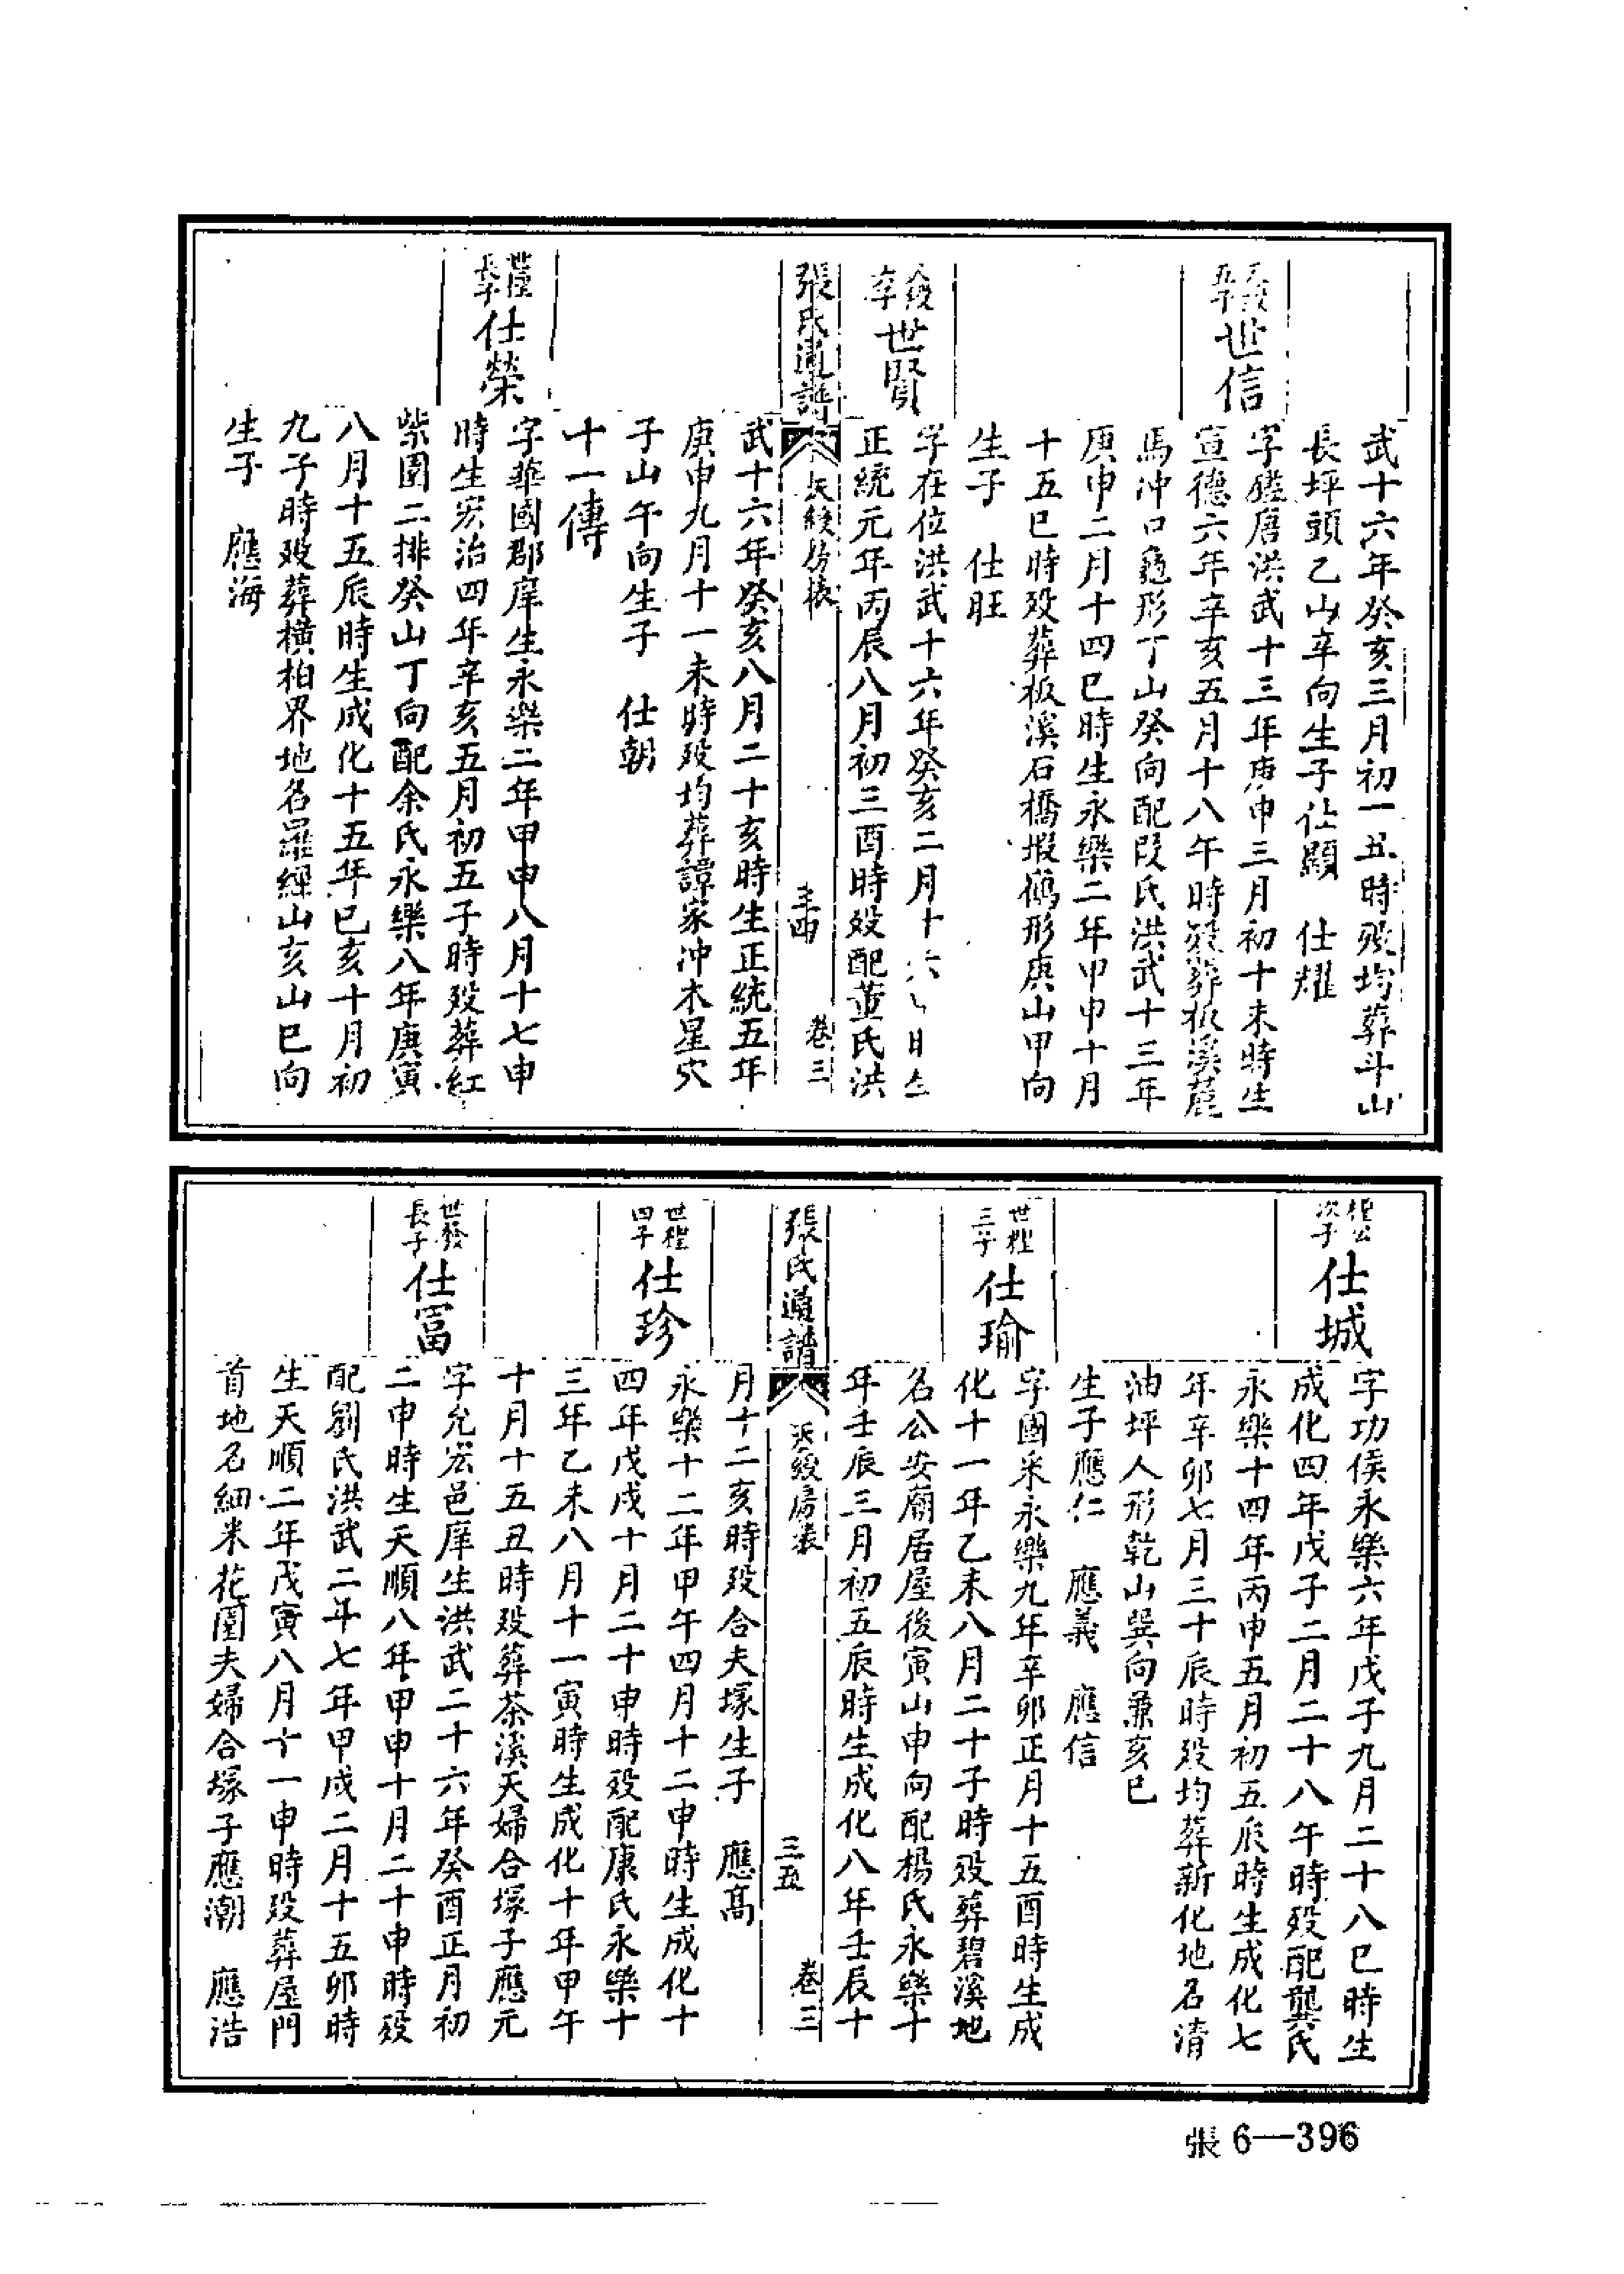 武十六年癸亥三月初一丑時歿均葬斗山
長坪頭乙山辛向生子仕顯　仕耀
五子
世信
字鑑唐洪武十三年庚申三月初十未時生
宣德六年辛亥五月十八午時歿葬板溪蔴
馬冲口龜形丁山癸向配段氏洪武十三年
庚申二月十四巳時生永樂二年甲申十月
十五巳時歿葬板溪石橋塅鶴形庚山甲向
生子　仕旺
世賢
字在位洪武十六年癸亥二月十六日
正統元年丙辰八月初三酉時歿配董氏洪
張氏通譜
卷三
武十六年癸亥八月二十亥時生正統五年
庚申九月十一未時歿均葬譚家冲木星穴
子山午向生子　仕朝
十一傳
長子
仕榮
字華國郡庠生永樂二年甲申八月十七申
時生宏治四年辛亥五月初五子時歿葬紅
柴園二排癸山丁向配余氏永樂八年庚寅
八月十五辰時生成化十五年已亥十月初
九子時歿葬橫柏界地名羅經山亥山巳向
生子　應海
次子
仕城
字功侯永樂六年戊子九月二十八巳時生
成化四年戊子二月二十八午時歿配龔氏
永樂十四年丙申五月初五辰時生成化七
年辛卯七月三十辰時歿均葬新化地名清
油坪人形乾山巽向兼亥巳
生子應仁　應義　應信
世程三子
仕瑜
字國采永樂九年辛卯正月十五酉時生成
化十一年乙未八月二十子時歿葬碧溪地
名公安廟居屋後寅山申向配楊氏永樂十
年壬辰三月初五辰時生成化八年壬辰十
張氏通譜
三五
卷三
月十二亥時歿合夫塚生子　應髙
世程四子
仕珍
永樂十二年甲午四月十二申時生成化十
四年戊戌十月二十申時歿配康氏永樂十
三年乙未八月十一寅時生成化十年甲午
十月十五丑時歿葬茶溪夫婦合塚子應元
長子
仕冨
字允宏邑庠生洪武二十六年癸酉正月初
二申時生天順八年甲申十月二十申時歿
配劉氏洪武二年七年甲戌二月十五卯時
生天順二年戊寅八月十一申時歿葬屋門
首地名細米花園夫婦合塚子應潮　應浩
張6—396